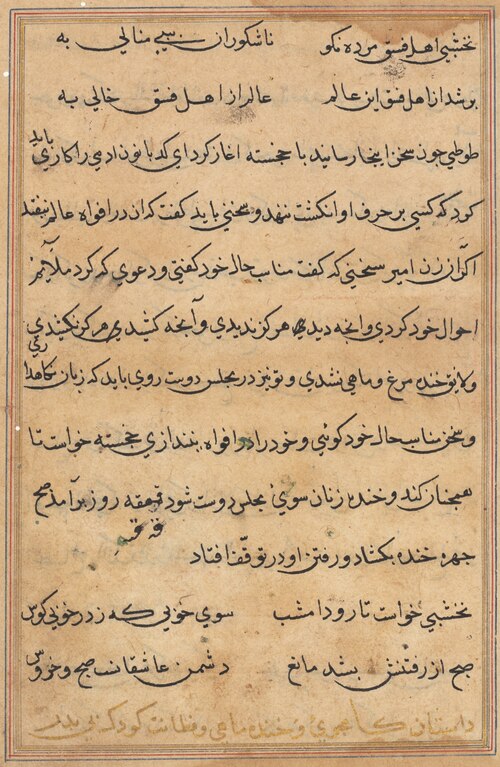 نخشبی اهل فسق مرده نکو ناشکوران سیبی منالی به
بر شد از اهل فسق این عالم عالم از اهل فسق خالی به
طوطی جون سخن اینجا رسانید با خجسته اغاز کرد ای کدبانو ادمی را کاری باید
کرد که کسی بر حرف او انکشت ننهد و سخنی باید کفت که ان در افواه عالم نیفتد
اکر آن زن امیر سخنی که کفت مناسب حال خود کفتی و دعوی که کرد ملایم
احوال خود کردی وانجه دیدی هرکز ندیدی وآنجه کشیدی هرکز نکشیدی
ولایق خنده مرغ و ماهی نشدی و تو نیز در مجلس دوست روی باید که زبان نکاهداری
و سخن مناسب حال خود کوئی و خود را در افواه نیندازی خجسته خواست تا
همجنان کند و خنده زنان سوی مجلس دوست شود قهقهه روز برآمد صبح
جهره خنده بکشاد و رفتن او در توقف افتاد
نخشبی خواست تا رود امشب سوی خوبی که زد ز خوبی کوس
صبح از رفتنش بشد مانع دشمن عاشقانست صبح و خروس
داستان وخنده ماهی و فطانت کودک بی پدر